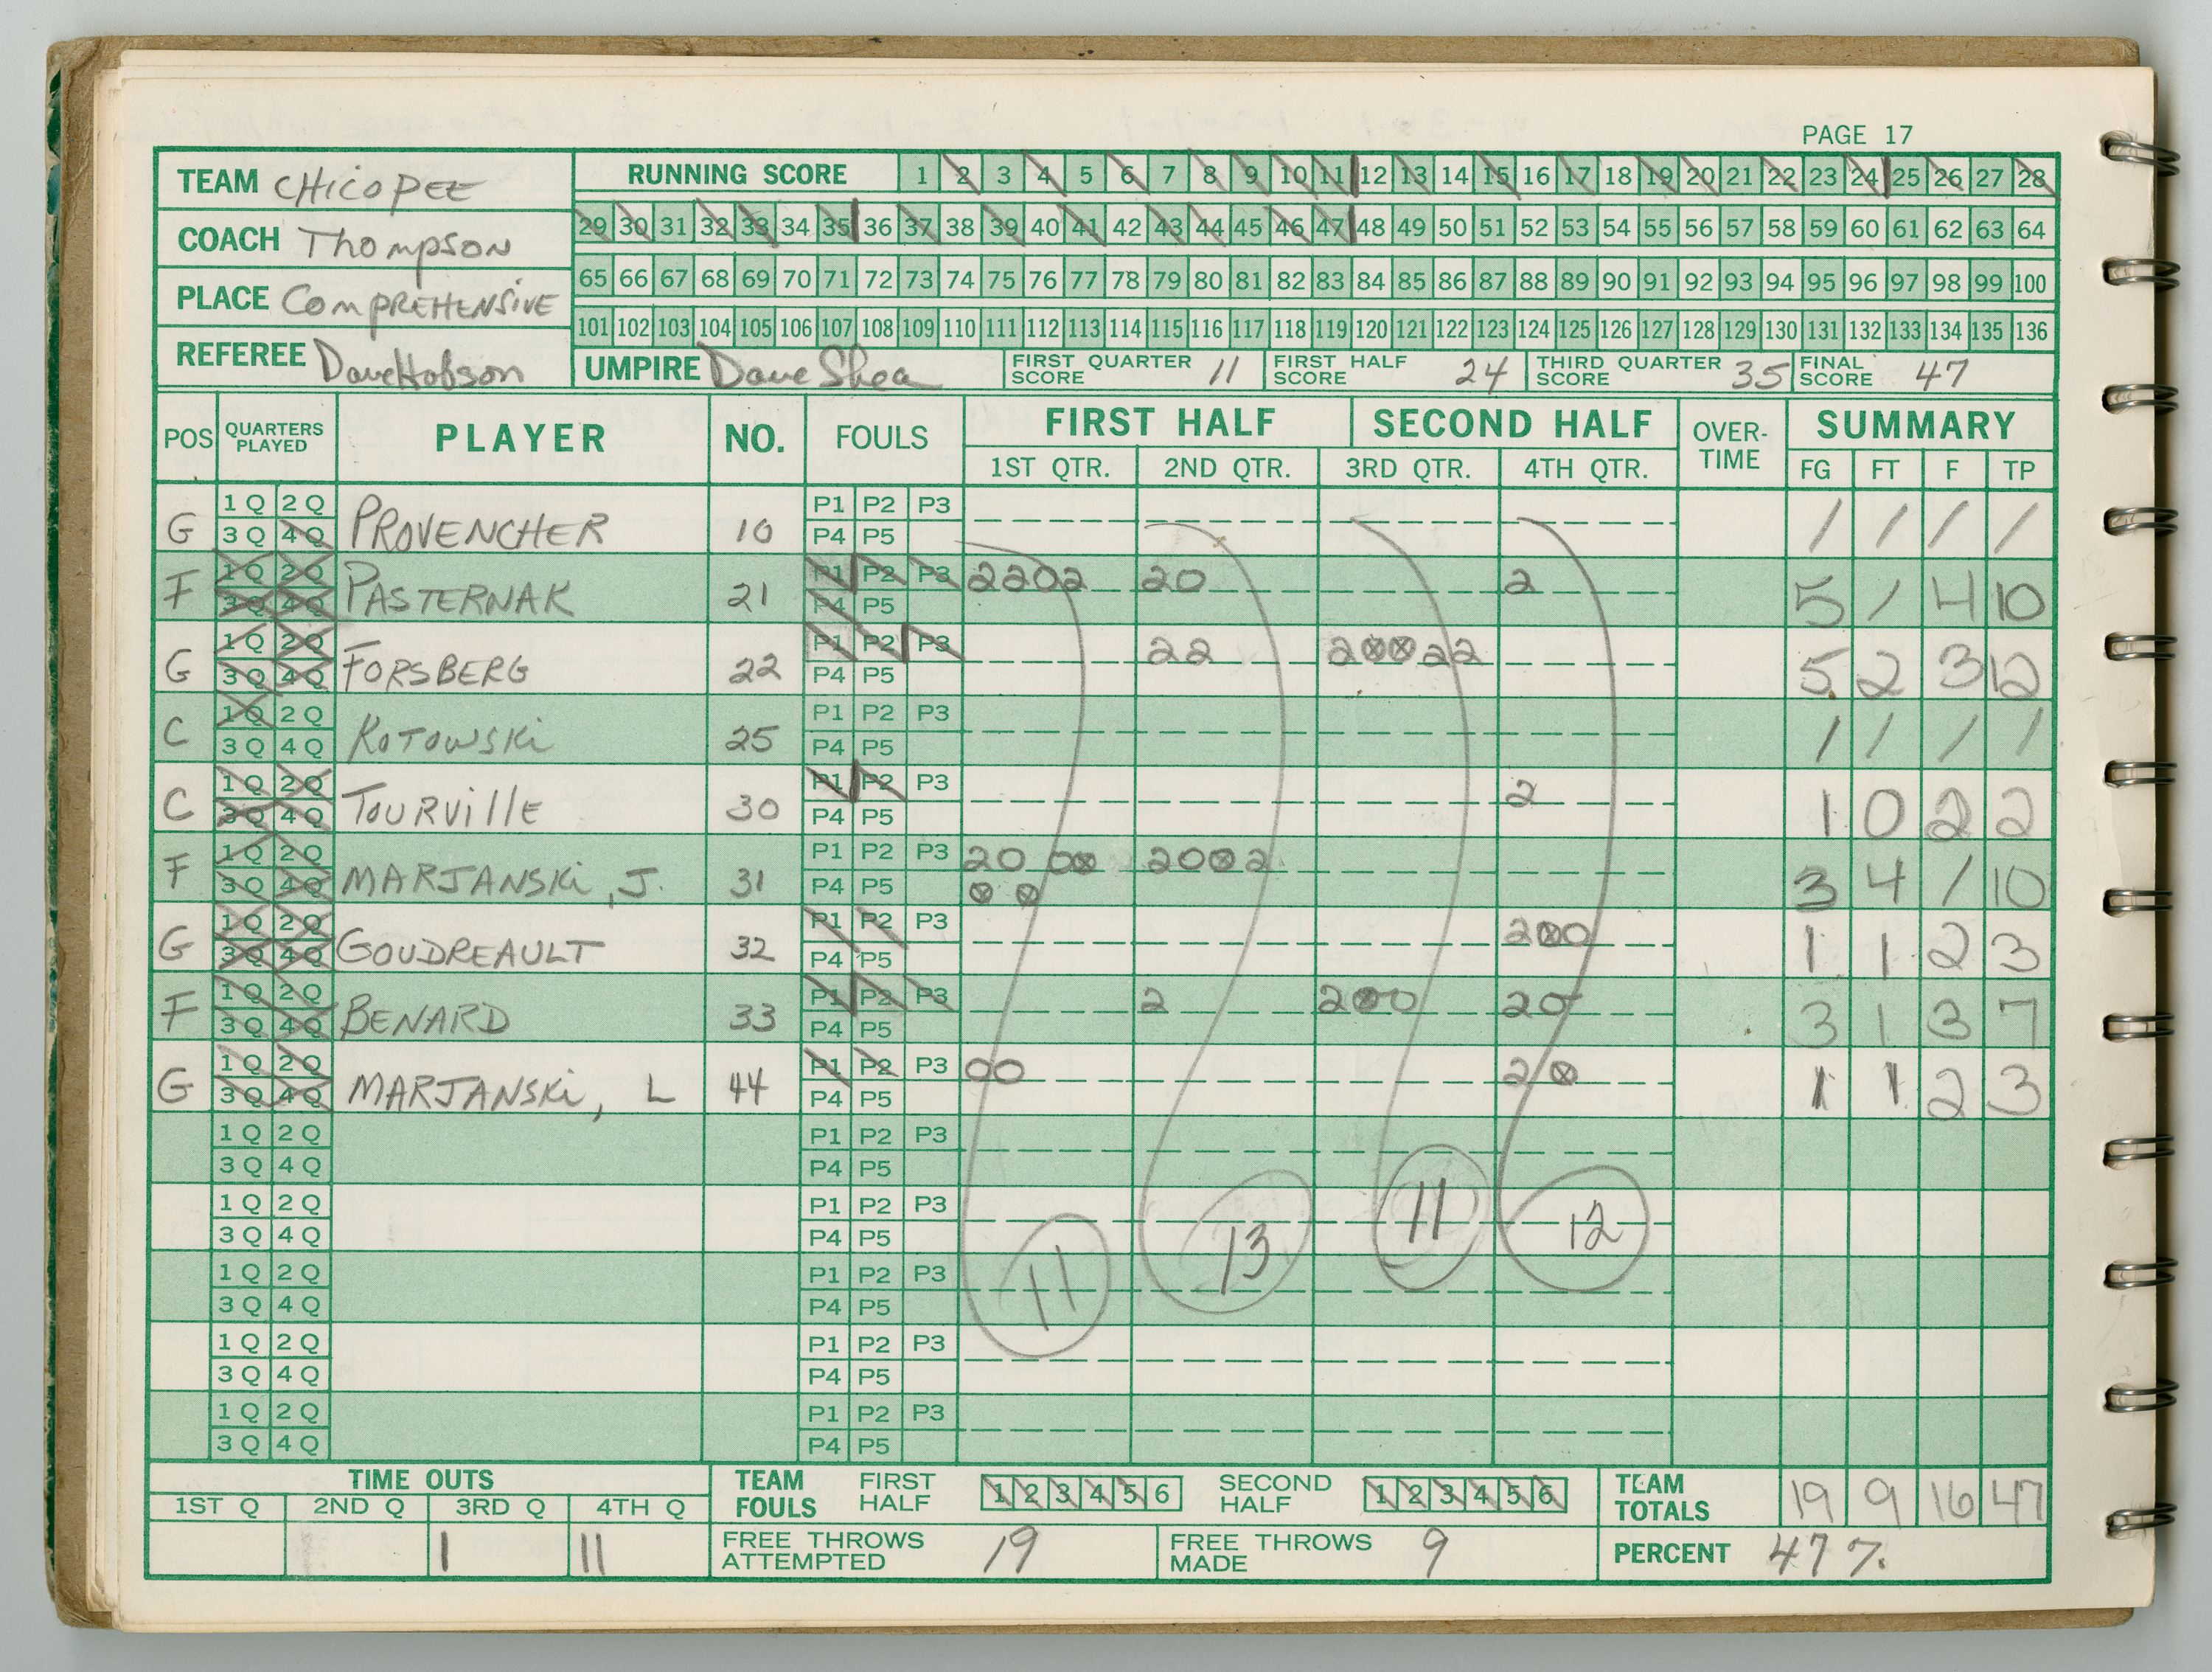 PAGE 17
TEAM CHICOPEE
COACH Thompson
PLACE COMPREHENSIVE
REFEREE Dave Hobson
RUNNING SCORE 1 2 3 4 5 6 7 8 9 10 11 12 13 14 15 16 17 18 19 20 21 22 23 24 25 26 27 28
29 30 31 32 33 34 35 36 37 38 39 40 41 42 43 44 45 46 47 48 49 50 51 52 53 54 55 56 57 58 59 60 61 62 63 64
65 66 67 68 69 70 71 72 73 74 75 76 77 78 79 80 81 82 83 84 85 86 87 88 89 90 91 92 93 94 95 96 97 98 99 100
101 102 103 104 105 106 107 108 109 110 111 112 113 114 115 116 117 118 119 120 121 122 123 124 125 126 127 128 129 130 131 132 133 134 135 136
UMPIRE Dave Shea FIRST QUARTER SCORE 11 FIRST HALF SCORE 24 THIRD QUARTER SCORE 35 FINAL SCORE 47
POS QUARTERS PLAYED PLAYER NO. FOULS FIRST HALF SECOND HALF OVER-TIME SUMMARY
1ST QTR. 2ND QTR. 3RD QTR. 4TH QTR. FG FT F TP
G 1Q 2Q 3Q 4Q PROVENCHER 10 P1 P2 P3 P4 P5 / / / /
F 1Q 2Q 3Q 4Q PASTERNAK 21 P1 P2 P3 P4 P5 2202 20 2 5 / 4 10
G 1Q 2Q 3Q 4Q FORSBERG 22 P1 P2 P3 P4 P5 22 2⊗⊗22 5 2 3 12
C 1Q 2Q 3Q 4Q KOTOWSKi 25 P1 P2 P3 P4 P5 / / / /
C 1Q 2Q 3Q 4Q TOURVillE 30 P1 P2 P3 P4 P5 2 1 0 2 2
F 1Q 2Q 3Q 4Q MARJANSKi, J. 31 P1 P2 P3 P4 P5 20 0⊗ ⊗ ⊗ 20⊗2 3 4 / 10
G 1Q 2Q 3Q 4Q GOUDREAULT 32 P1 P2 P3 P4 P5 2⊗0 1 1 2 3
F 1Q 2Q 3Q 4Q BENARD 33 P1 P2 P3 P4 P5 2 2⊗0 20 3 1 3 7
G 1Q 2Q 3Q 4Q MARJANSKi, L 44 P1 P2 P3 P4 P5 00 2⊗ 1 1 2 3
1Q 2Q 3Q 4Q P1 P2 P3 P4 P5
1Q 2Q 3Q 4Q P1 P2 P3 P4 P5
1Q 2Q 3Q 4Q P1 P2 P3 P4 P5
11 13 11 12
1Q 2Q 3Q 4Q P1 P2 P3 P4 P5
1Q 2Q 3Q 4Q P1 P2 P3 P4 P5
TIME OUTS TEAM FOULS FIRST HALF 1 2 3 4 5 6 SECOND HALF 1 2 3 4 5 6 TEAM TOTALS 19 9 16 47
1ST Q 2ND Q 3RD Q 4TH Q
1 1 11 FREE THROWS ATTEMPTED 19 FREE THROWS MADE 9 PERCENT 47%